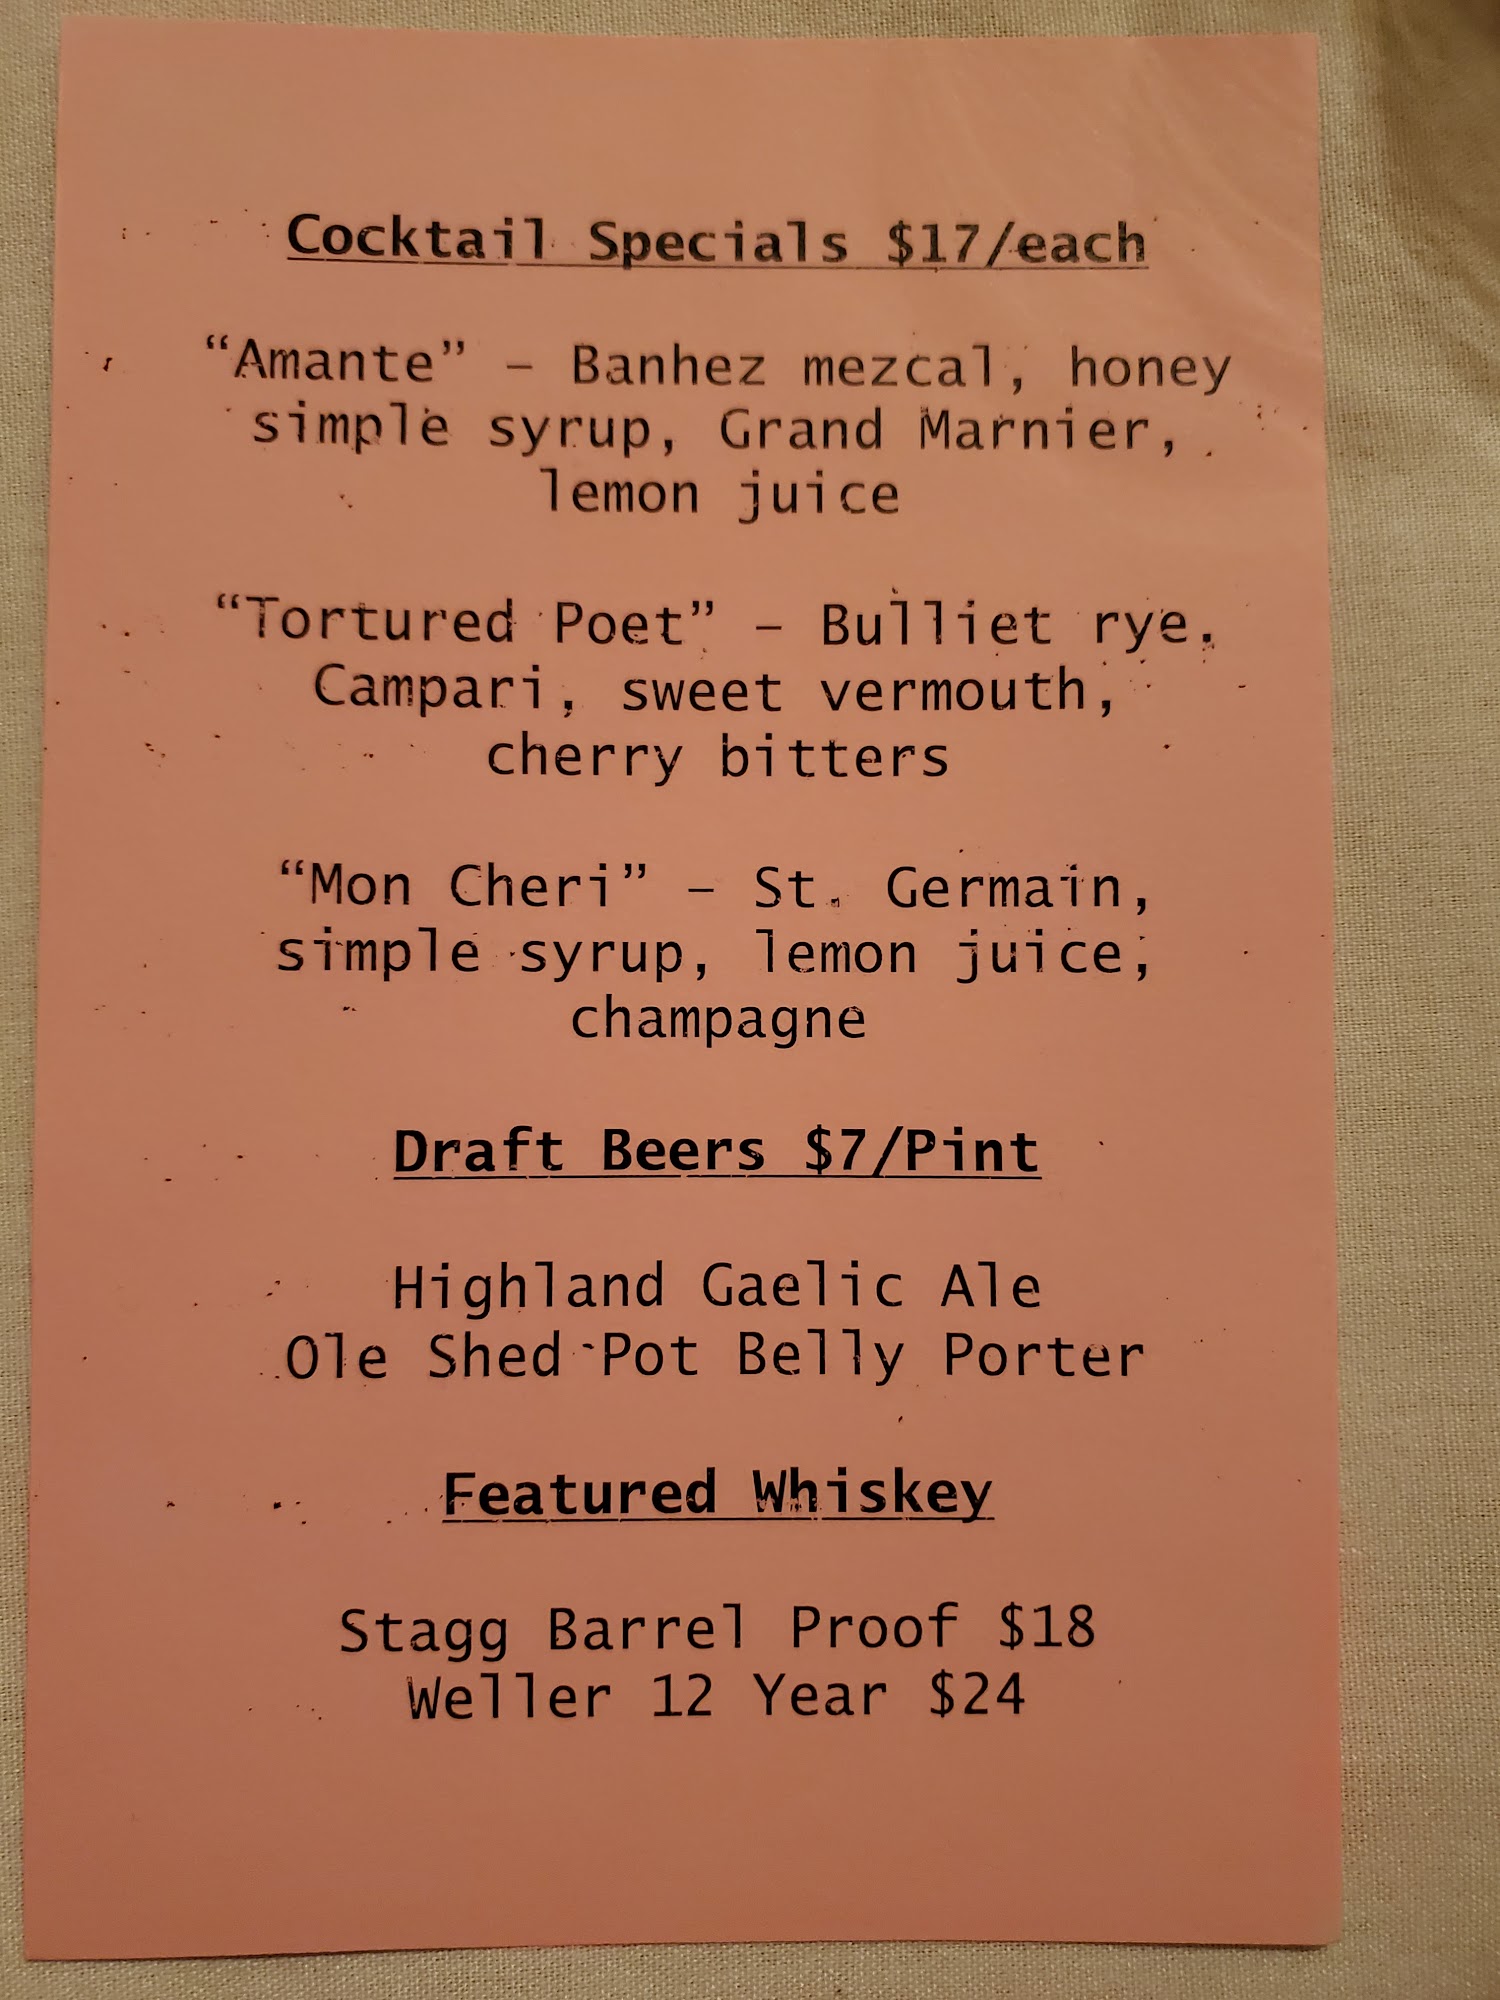 Cocktail Specials $17/each
“Amante” – Banhez mezcal, honey
simple syrup, Grand Marnier,
lemon juice
“Tortured Poet” – Bulliet rye,
Campari, sweet vermouth,
cherry bitters
“Mon Cheri” – St. Germain,
simple syrup, lemon juice,
champagne
Draft Beers $7/Pint
Highland Gaelic Ale
Ole Shed Pot Belly Porter
Featured Whiskey
Stagg Barrel Proof $18
Weller 12 Year $24